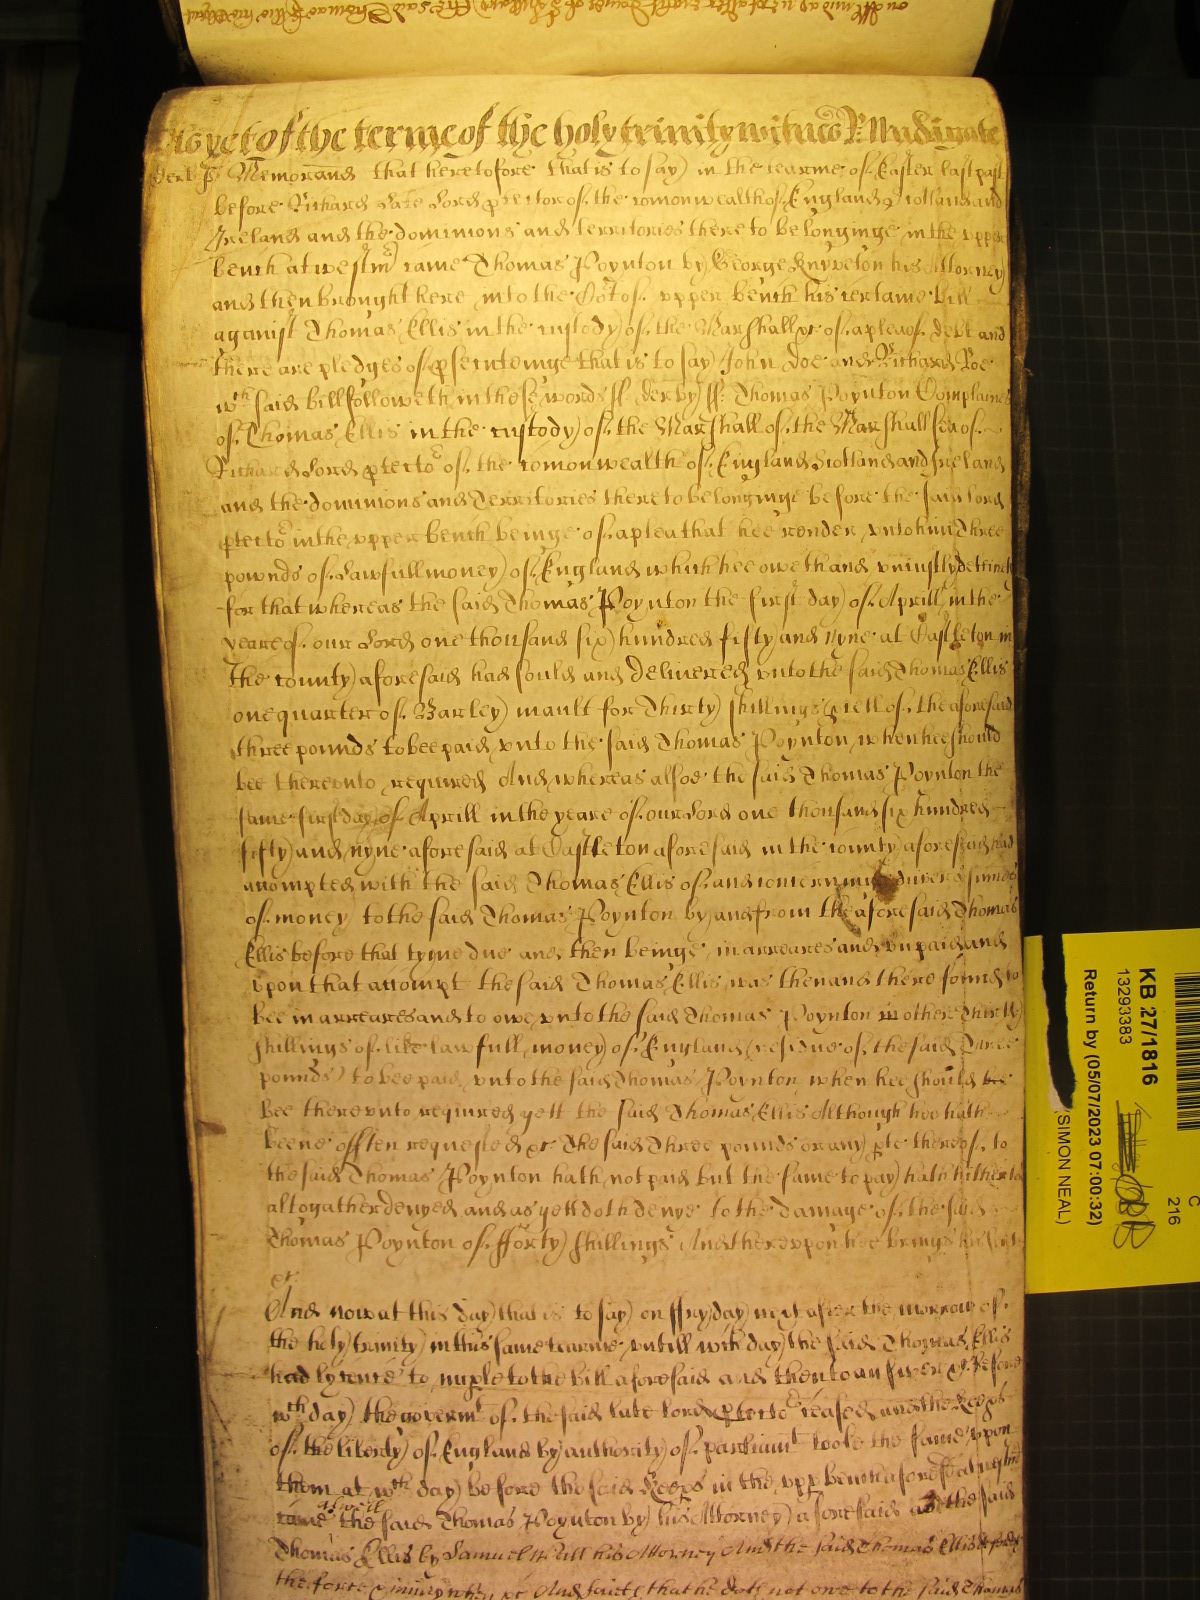 as yet of the terme of the holy trinity witnes R: Nudigate
Derb ss Memorand that heretofore that is to say in the tearme of Easter last past
before Richard Late Lord ptector of the comonwealth of England Scotland and
Ireland and the dominions and territories there to belonginge in the upper
bench at westmr came Thomas Poynton by George Knyveton his Attorney
and then brought here into the Cort of upper bench his certaine bill
against Thomas Ellis in the custody of the Marshall &c of a plea of debt and
there are pledges of psecuteinge that is to say John Doe and Richard Roe
wch said bill followeth in these words ss Derby ss Thomas Poynton Complaines
of Thomas Ellis in the custody of the Marshall of the Marshallsea of
Richard Lord ptector of the comonwealth of England Scotland and Ireland
and the dominions and Territories thereto belonginge before the said lord
ptector in the upper bench beinge of a plea that hee render unto him Three
pownds of Lawfull money of England which hee oweth and uniustly detineth
for that whereas the said Thomas Poynton the first day of Aprill in the
yeare of our Lord one thousand six hundred fifty and nyne at Castleton in
the county aforesaid had sould and delivered unto the said Thomas Ellis
one quarter of Barley mault for Thirty shillings pcell of the aforesaid
three pounds to bee paid unto the said Thomas Poynton when hee should
bee thereunto required And whereas alsoe the said Thomas Poynton the
same first day of Aprill in the yeare of our Lord one thousand six hundred
fifty and nyne aforesaid at Castleton aforesaid in the county aforesaid had
accompted with the said Thomas Ellis of and concerning divers sumes
of money to the said Thomas Poynton by and from the aforesaid Thomas
Ellis before that tyme due and then beinge in arreares and unpaid and
upon that accompt the said Thomas Ellis was then and there found to
bee in arreares and to owe unto the said Thomas Poynton in other thirty
shillings of like lawfull money of England (residue of the said Three
pounds) to bee paid unto the said Thomas Poynton when hee should bee
bee thereunto required yett the said Thomas Ellis Although hee hath
beene offten requested &c The said Three pounds or any pte thereof to
the said Thomas Poynton hath not paid but the same to pay hath hitherto
altogather denyed and as yett doth denye to the damage of the said
Thomas Poynton of fforty shillings And thereupon hee brings
&c
And now at this day that is to say on ffryday next after the morrow of
the holy trinity in this same tearme untill wch day the said Thomas Ellis
had lycence to imple to the bill aforesaid and then to answer &c Before
wch day the govermt of the said late lord ptector ceased and the Keeps
of the liberty of England by authority of parliamt tooke the same upon
them at wch day before the said Keeps in the upp bench aforesd at westmr
came aswell the said Thomas Poynton by his Attorney aforesaid as the said
Thomas Ellis by Samuel his Attorney And the said Thomas Ellis defends
the force & iniury when &c And saieth that he doth not owe to the said Thomas
KB 27/1816
13293383
Return by (05/07/2023 07:00:32)
(SIMON NEAL)
C
216